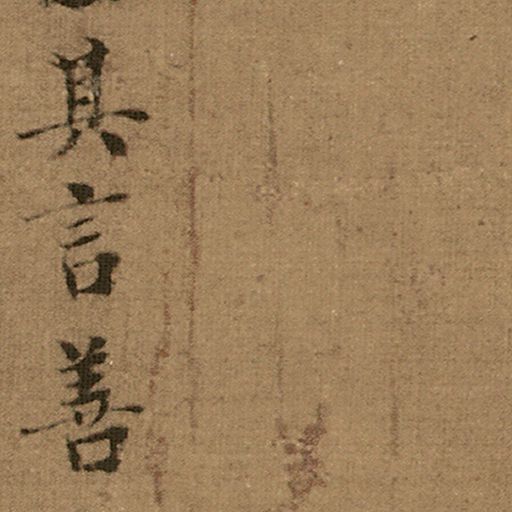 其言善